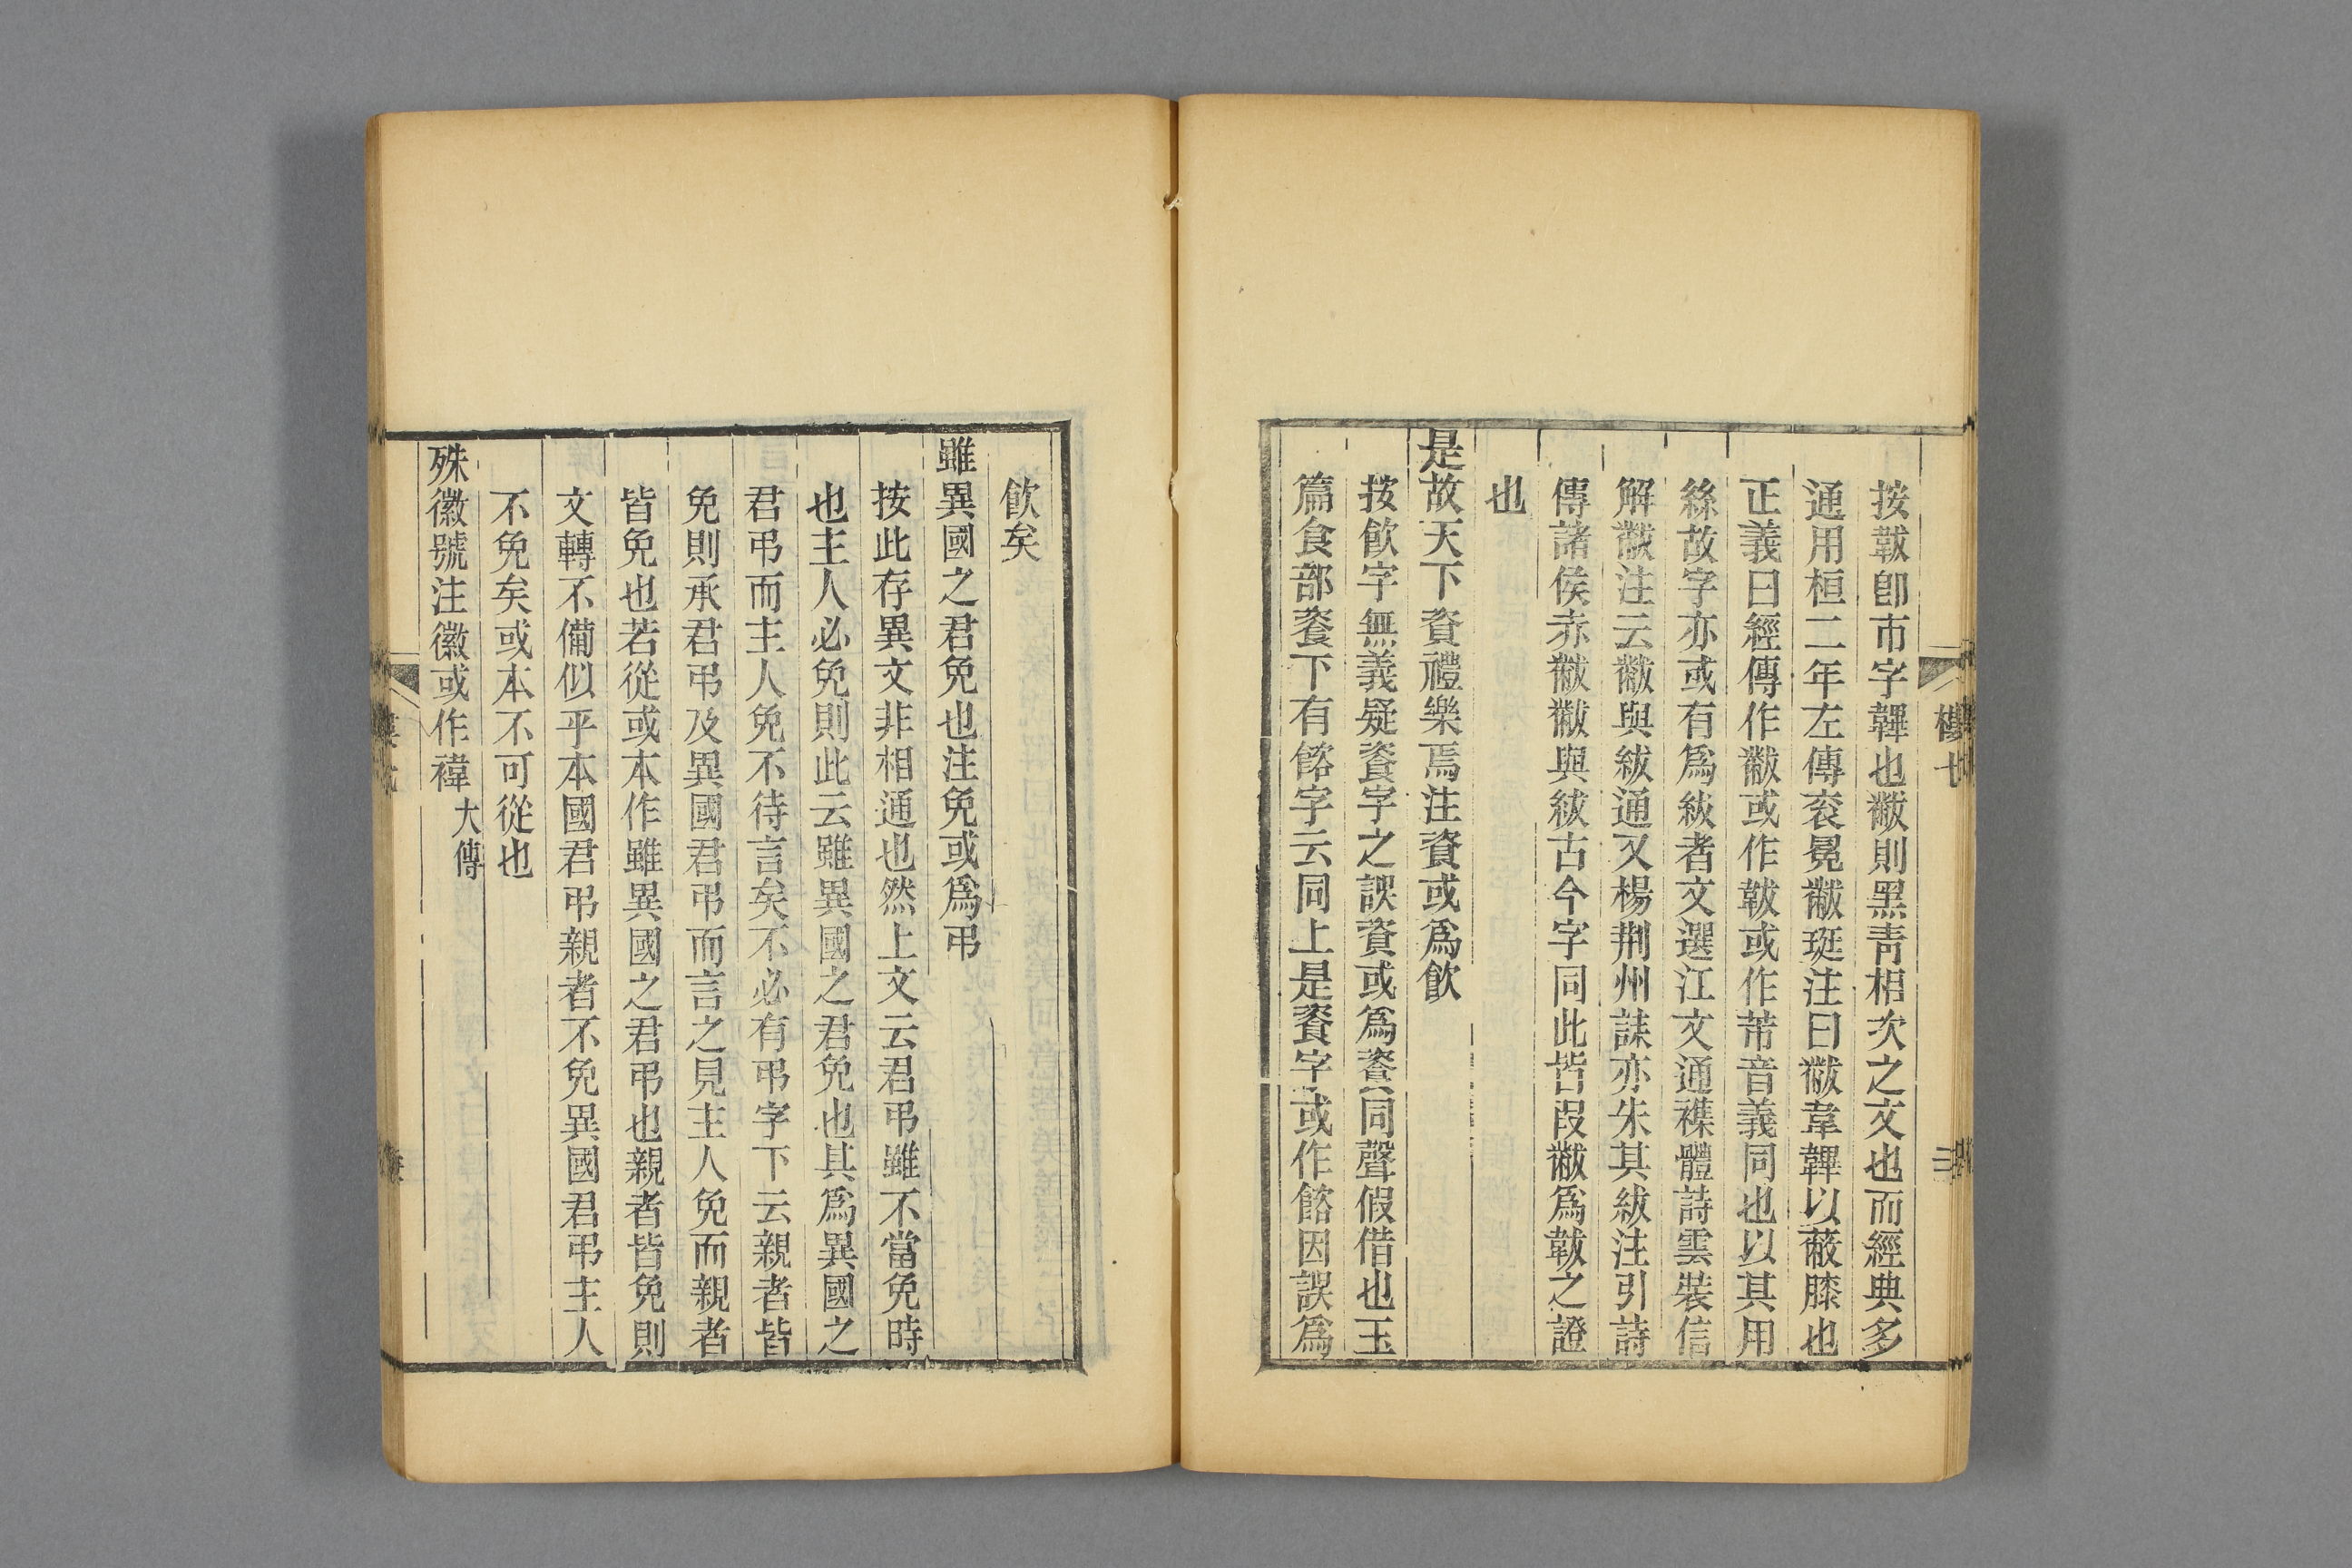 按韍卽巿字韠也黻則黑靑相次之文也而經典多
通用桓二年左傳衮冕黻珽注曰黻韋韠以蔽膝也
正義曰經傳作黻或作韍或作芾音義同也以其用
絲故字亦或有爲紱者文選江文通襍體詩雲裝信
解黻注云黻與紱通又楊荆州誄亦朱其紱注引詩
傳諸侯赤黻黻與紱古今字同此皆叚黻爲韍之證
也
是故天下資禮樂焉注資或爲飮
按飮字無義疑餈字之誤資或爲餈同聲假借也玉
篇食部餈下有餎字云同上是餈字或作餎因誤爲
飮矣
雖異國之君免也注免或爲弔
按此存異文非相通也然上文云君弔雖不當免時
也主人必免則此云雖異國之君免也其爲異國之
君弔而主人免不待言矣不必有弔字下云親者皆
免則承君弔及異國君弔而言之見主人免而親者
皆免也若從或本作雖異國之君弔也親者皆免則
文轉不備似乎本國君弔親者不免異國君弔主人
不免矣或本不可從也
殊徽號注徽或作褘 大傳